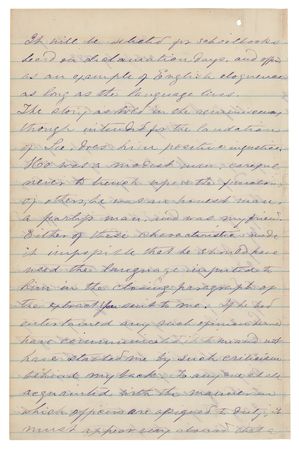 It will be selected for schoolbooks
heard on declamation days, and offered
as an example of English eloquence
as long as the language lives.
The story, as told in the reminiscences,
though intended for the laudation
of Lee, does him positive injustice.
He was a modest man, careful
never to trench upon the functions
of others, he was an honest man,
a fearless man, and was my friend.
Either of these characteristics made
it impossible that he should have
used the language imputed to
him in the closing paragraph of
the extract you sent to me. If he had
entertained any such opinion he would
have communicated it to me and not
have stabbed me by such criticism
behind my back. To any one at all
acquainted with the manner in
which officers are assigned to duty, it
must appear very absurd that